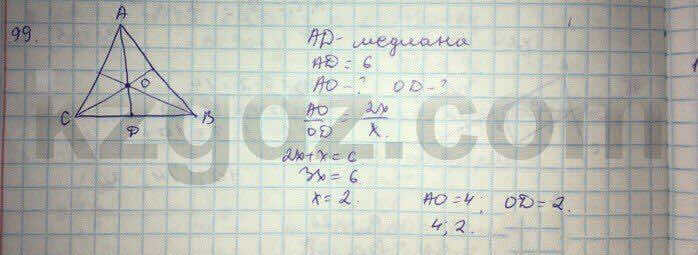 99.
A
O
C
B
D
AD - медиана
AD = 6
AO - ? OD - ?
AO/OD = 2x/x.
2x+x=6
3x=6
x=2.
AO=4; OD=2.
4; 2.
kzgdz.com